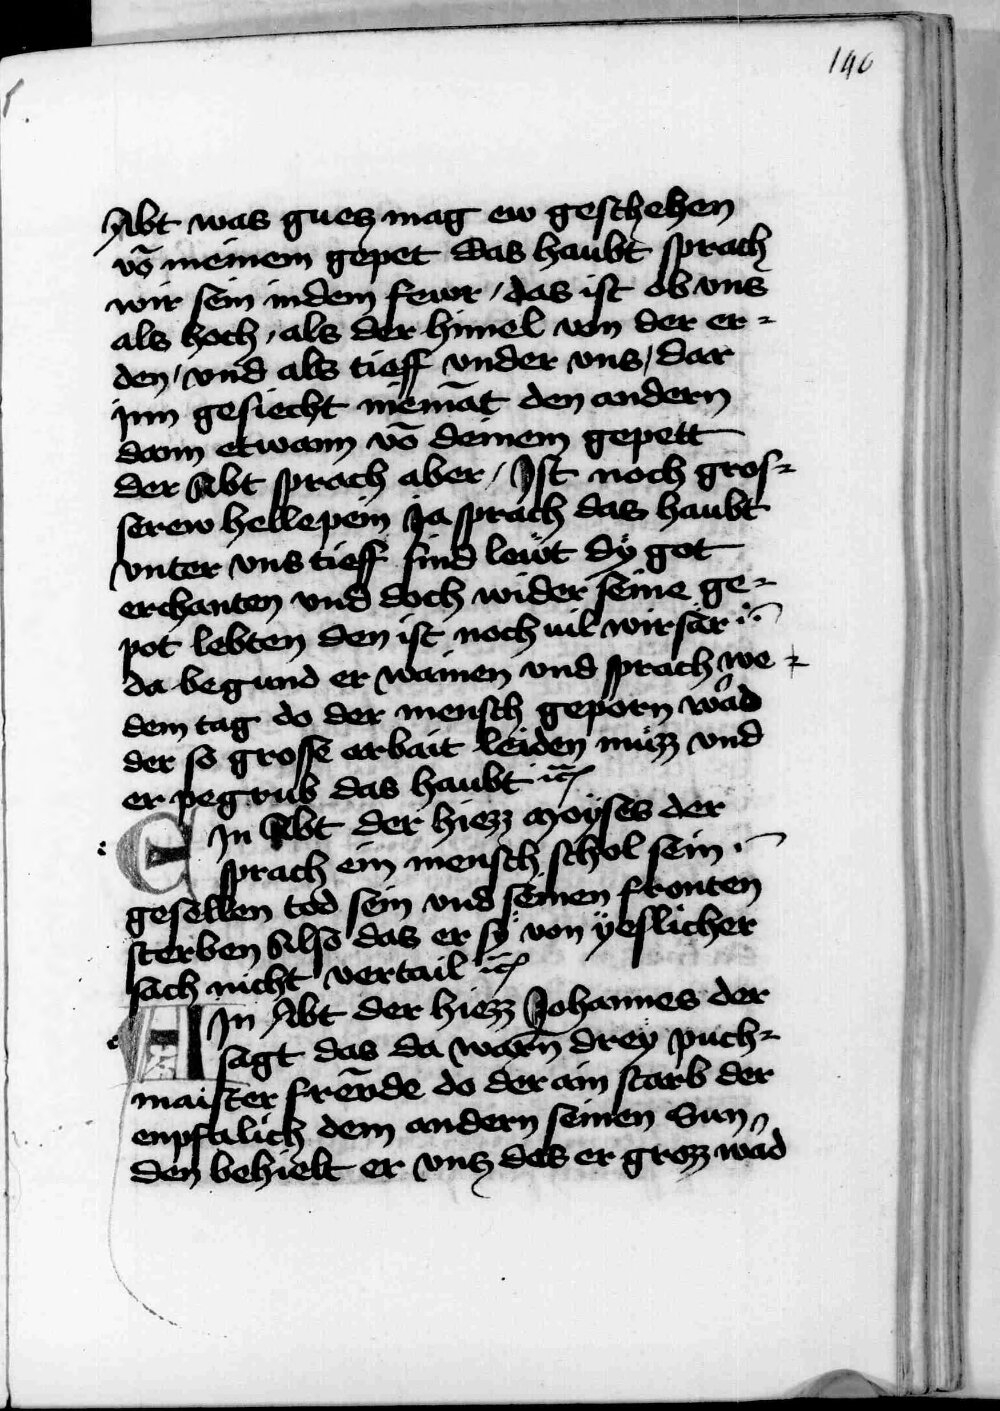 146
Abt was guetz mag ew geschehen
võ meinem gepet das haubt sprach
wir sein in dem fewr / das ist ob vns
als hoch / als der himel von der er =
den / vnd als tieff vnder vns / dar
jnn gesiecht niemãt den andern
dann etwann võ deinem gepett
der Abt sprach aber / Ist noch gros =
serew helle pein Ja sprach das haubt
vnter vns tieff sind lewt dÿ got
erchanten vnd doch wider seine ge =
pot lebten den ist noch uil wirsär
da begund er wainen vnd sprach we =
dem tag do der mensch geporn wad
der so grosse arbait leiden müzz vnd
er pegrub das haubt
EIn Abt der hiezz Moÿses der
sprach ein mensch schol sein
gesellen tod sein vnd seinen fronten
sterben Also das er sÿ von ÿeslicher
sach nicht vertail
AIn Abt der hiezz Johannes der
sagt das da warn dreÿ puch =
maister frewde do der ain starb der
enpfalich dem andern seinen Sun
den behielt er vntz das er grozz wad